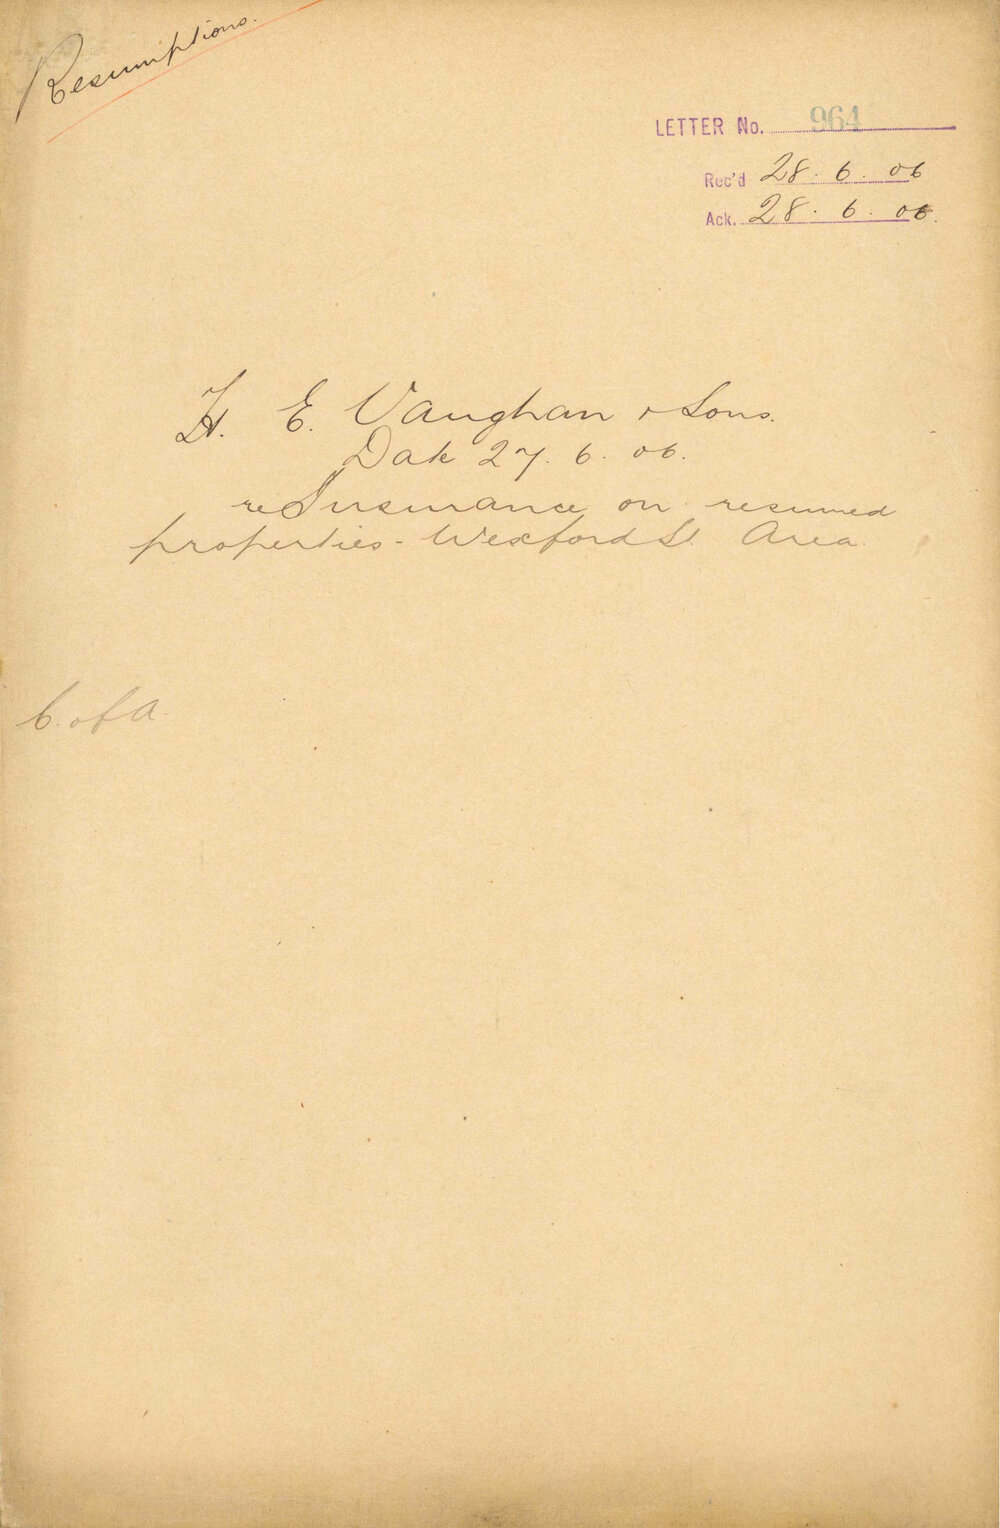 Resumptions.
LETTER No. 964
Rec'd 28. 6. 06
Ack. 28. 6. 06.
H. E. Vaughan & Sons.
Date 27. 6. 06.
re Insurance on resumed
properties - Wexford St. Area.
C. of A.